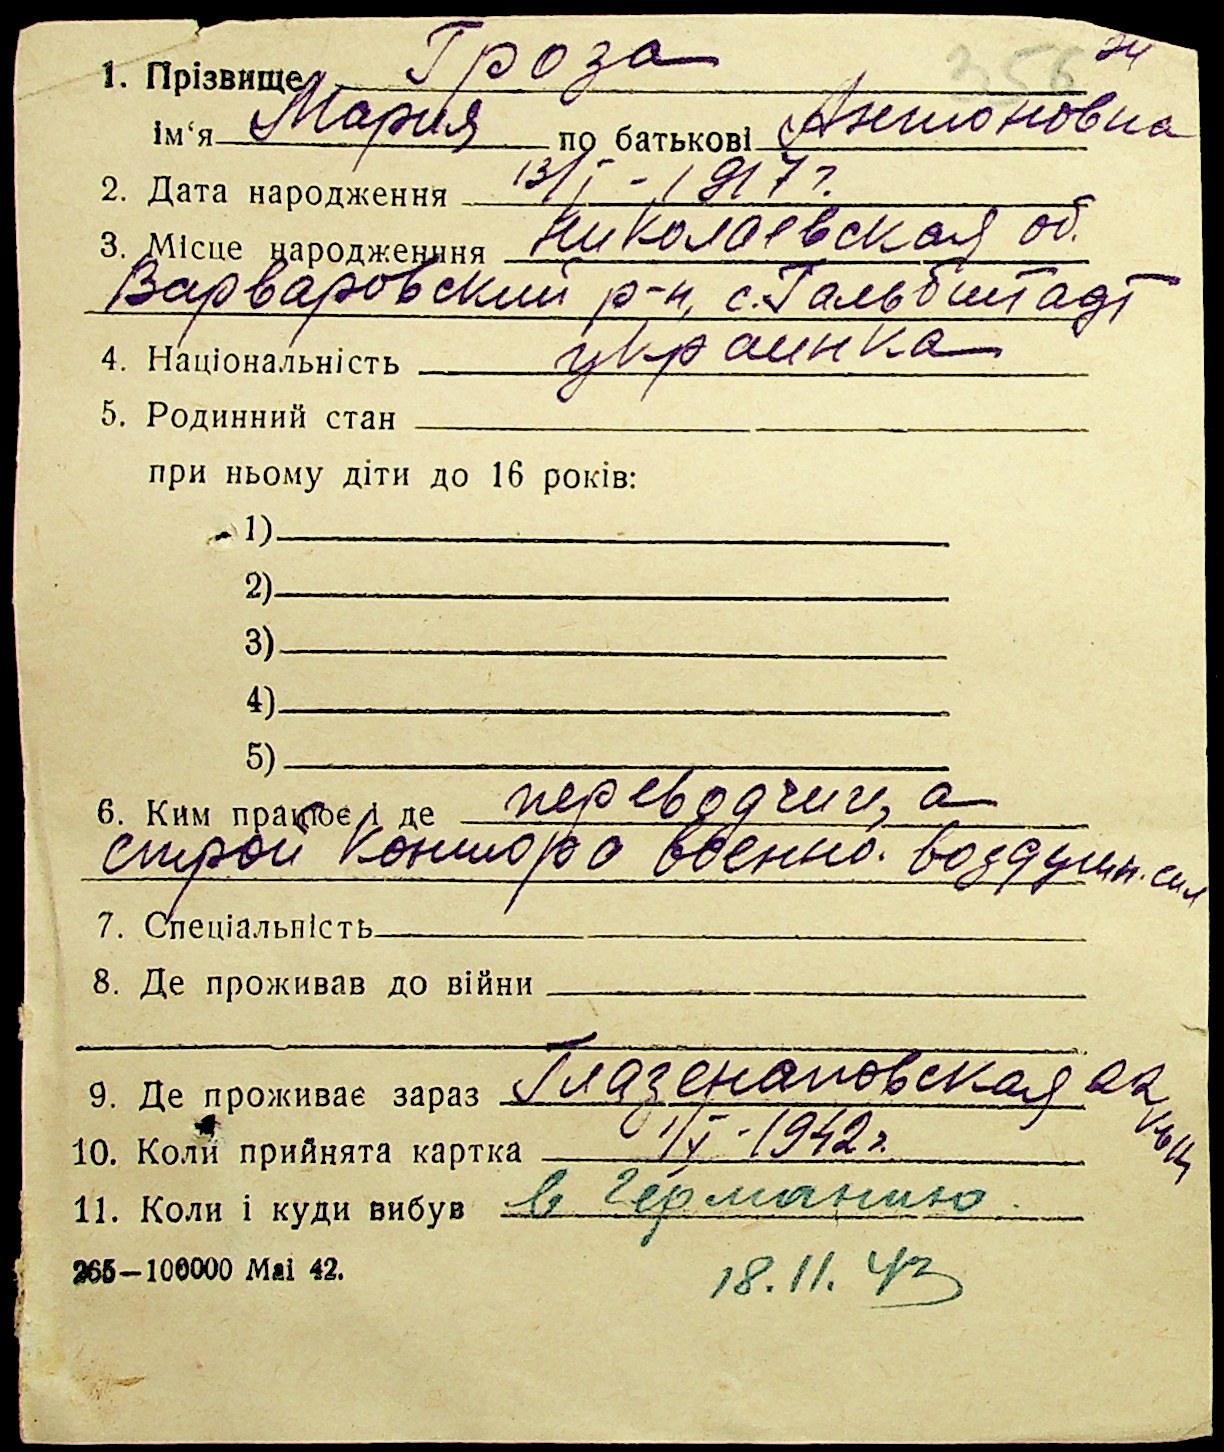 356 24
1. Прізвище Гроза
ім‘я Мария по батькові Антоновна
2. Дата народження 13/I - 1917 г.
3. Місце народженння Николаевская об.
Варваровский р-н, с. Гальбштадт
4. Національність украинка
5. Родинний стан
при ньому діти до 16 років:
1)
2)
3)
4)
5)
6. Ким працює і де переводчица
строй контора военно. воздушн. сил
7. Спеціальність
8. Де проживав до війни
9. Де проживає зараз Глазенаповская 22
10. Коли прийнята картка 1/X - 1942 г.
11. Коли і куди вибув в Германию.
265—100000 Mai 42.
18.11.43